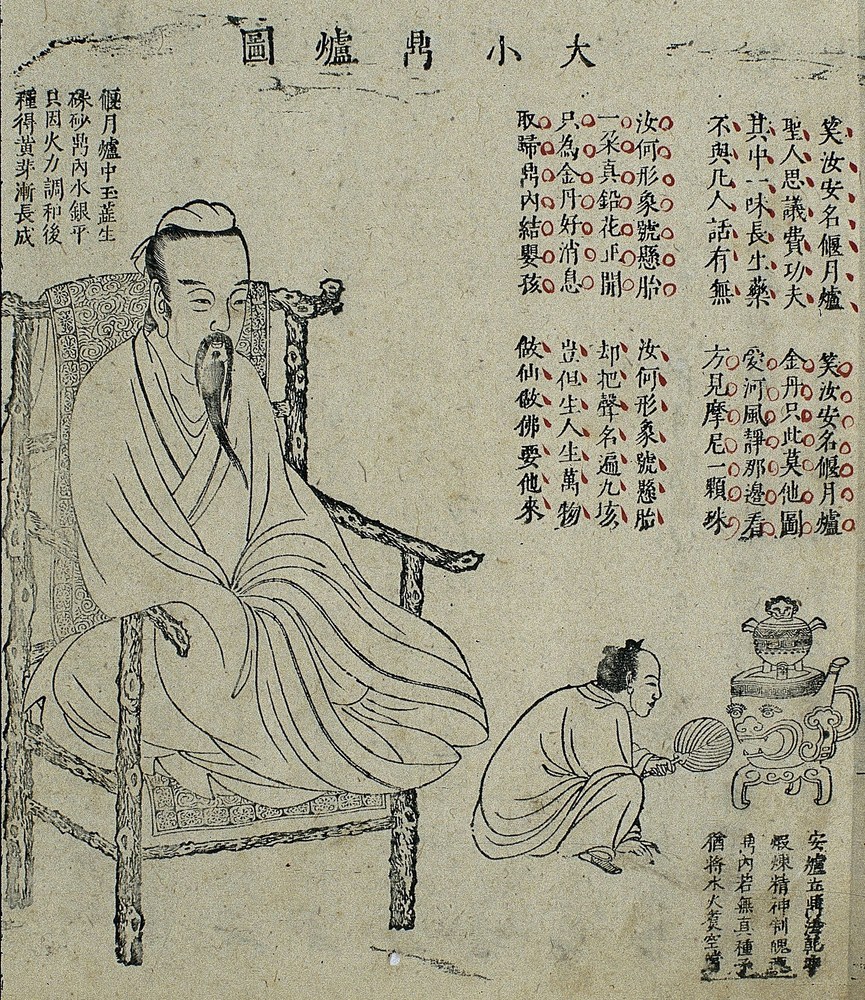 大小鼎爐圖
笑汝安名偃月爐
聖人思議費功夫
其中一味長生藥
不與凡人話有無
汝何形象號懸胎
一朶真鉛花正開
只為金丹好消息
取歸鼎內結嬰孩
笑汝安名偃月爐
金丹只此莫他圖
愛河風靜那邊看
方見摩尼一顆珠
汝何形象號懸胎
却把聲名遍九垓
豈但生人生萬物
做仙做佛要他來
偃月爐中玉蕋生
硃砂鼎內水銀平
只因火力調和後
種得黃芽漸長成
安爐立鼎法乾坤
煆煉精神制魄䰟
鼎內若無真種子
猶將水火煑空鐺